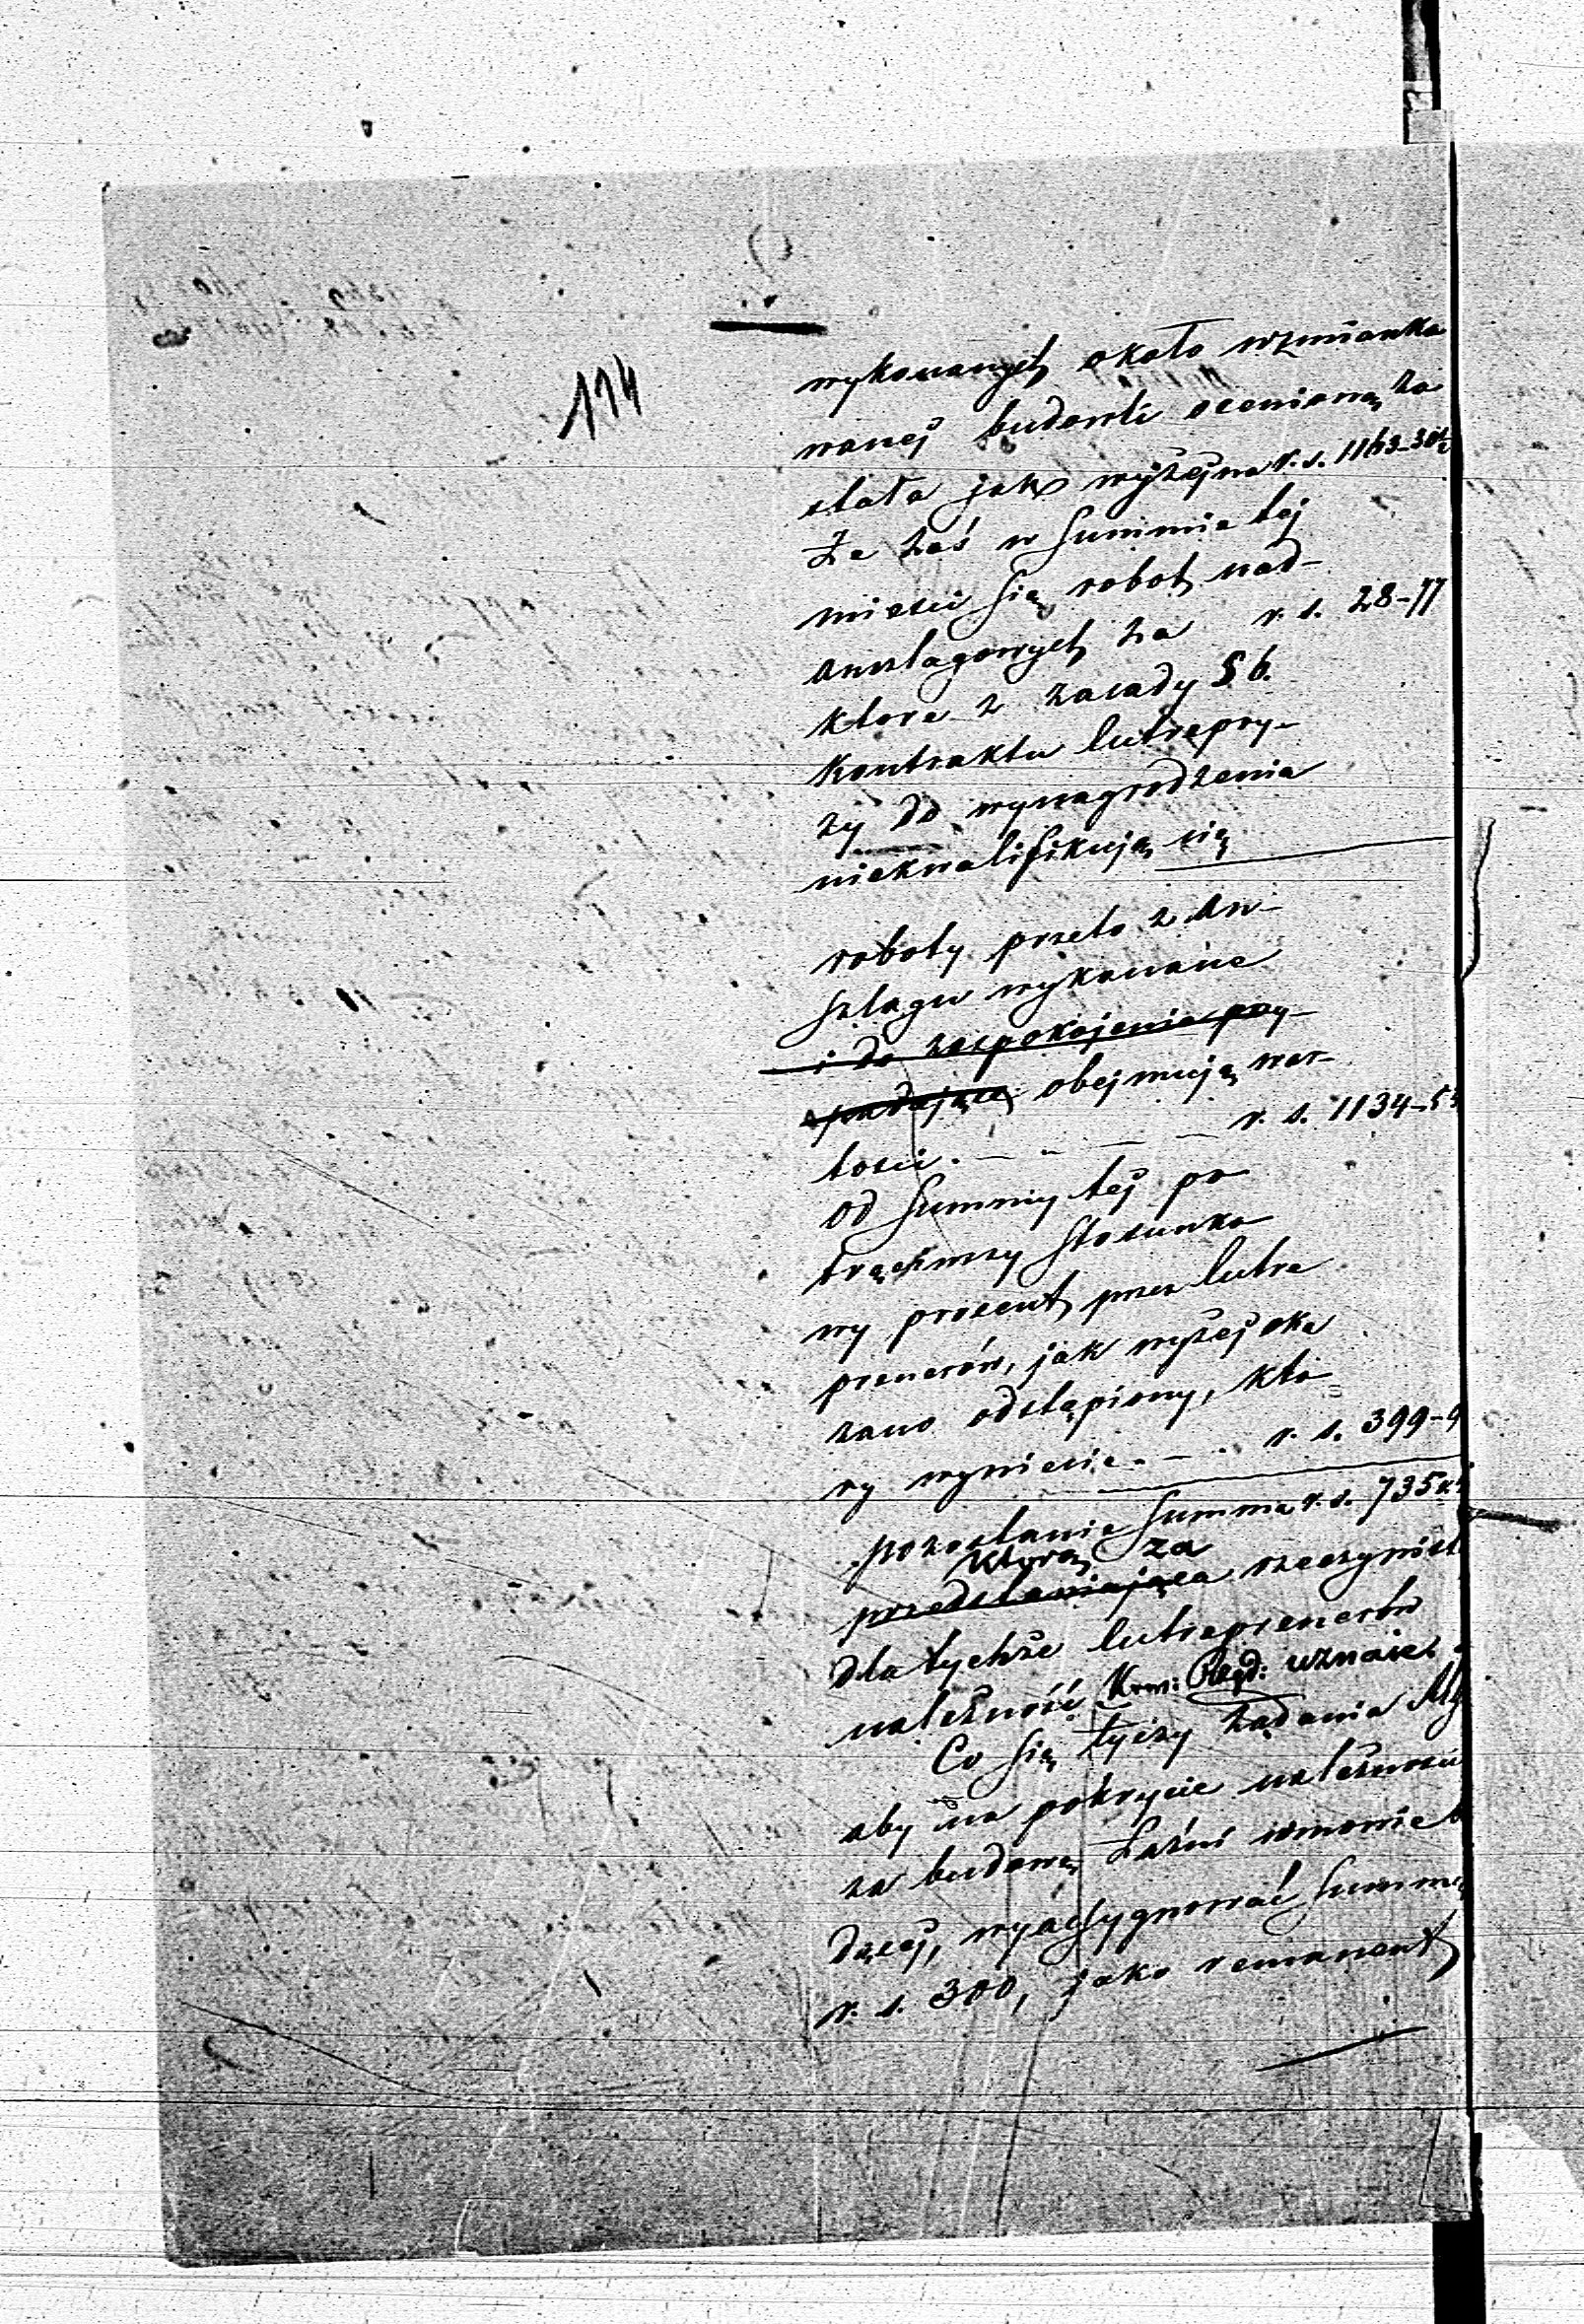 114
wykonanych około wzmianko
wanej budowli ocenioną zo
stała jako wyżej na r. s. 1163-30½
Że zaś w Summie tej
mieści Się robot nad-
anszlagowych za r. s. 28-77
które z zasady § 6.
Kontraktu Entrepry-
zy do wynagrodzenia
niekwalifikują się
roboty przeto z An-
szlagu wykonane
i do zaspokojenia przy-
padające obejmują war-
tości. — — — r. s. 1134-53
od Summy tej po
trąciwszy Stosunko
wy procent przez Entre
prenerów, jak wyżej oka
zano odstąpiony, któ
ry wyniesie. — . r. s. 399-9
pozostanie Summa r. s. 735
którą za
przedstawiająca rzeczywist
dla tychże Entreprenerów
należność Kom: Rząd: uznaie.
Co Się tyczy żądania
aby na pokrycie należności
za budowę Łaźni w mowie b
dącej, wyassygnować Summę
r. s. 300, jako remanent